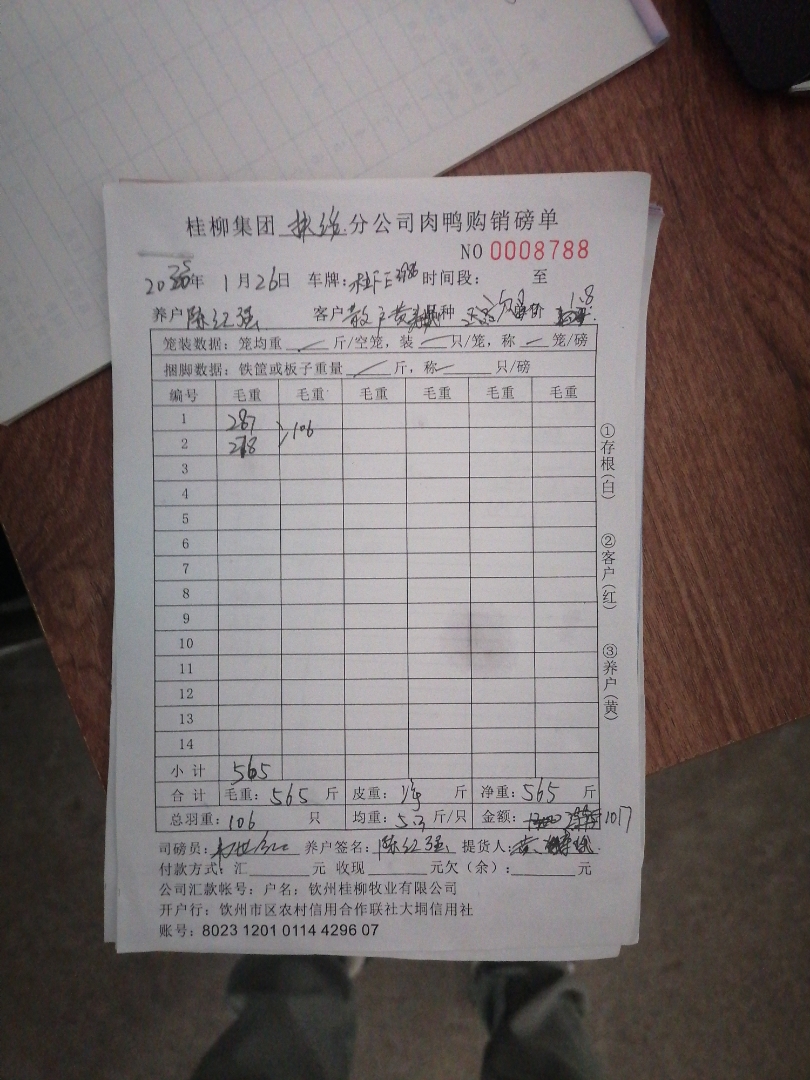 桂柳集团 分公司肉鸭购销磅单
NO 0008788
20 年 1月26日 车牌: 时间段: 至
养户 陈红强 客户 散户黄 种 1.8
笼装数据: 笼均重 斤/空笼, 装 只/笼, 称 笼/磅
捆脚数据: 铁筐或板子重量 斤, 称 只/磅
编号 毛重 毛重 毛重 毛重 毛重 毛重
1 287
2 278 106
3
4
5
6
7
8
9
10
11
12
13
14
小计 565
合计 毛重: 565 斤 皮重: 斤 净重: 565 斤
总羽重: 106 只 均重: 5.3 斤/只 金额: 1017
司磅员: 养户签名: 陈红强 提货人: 黄
付款方式: 汇 元 收现 元欠(余): 元
公司汇款帐号: 户名: 钦州桂柳牧业有限公司
开户行: 钦州市区农村信用合作联社大垌信用社
账号: 8023 1201 0114 4296 07
①存根(白)
②客户(红)
③养户(黄)